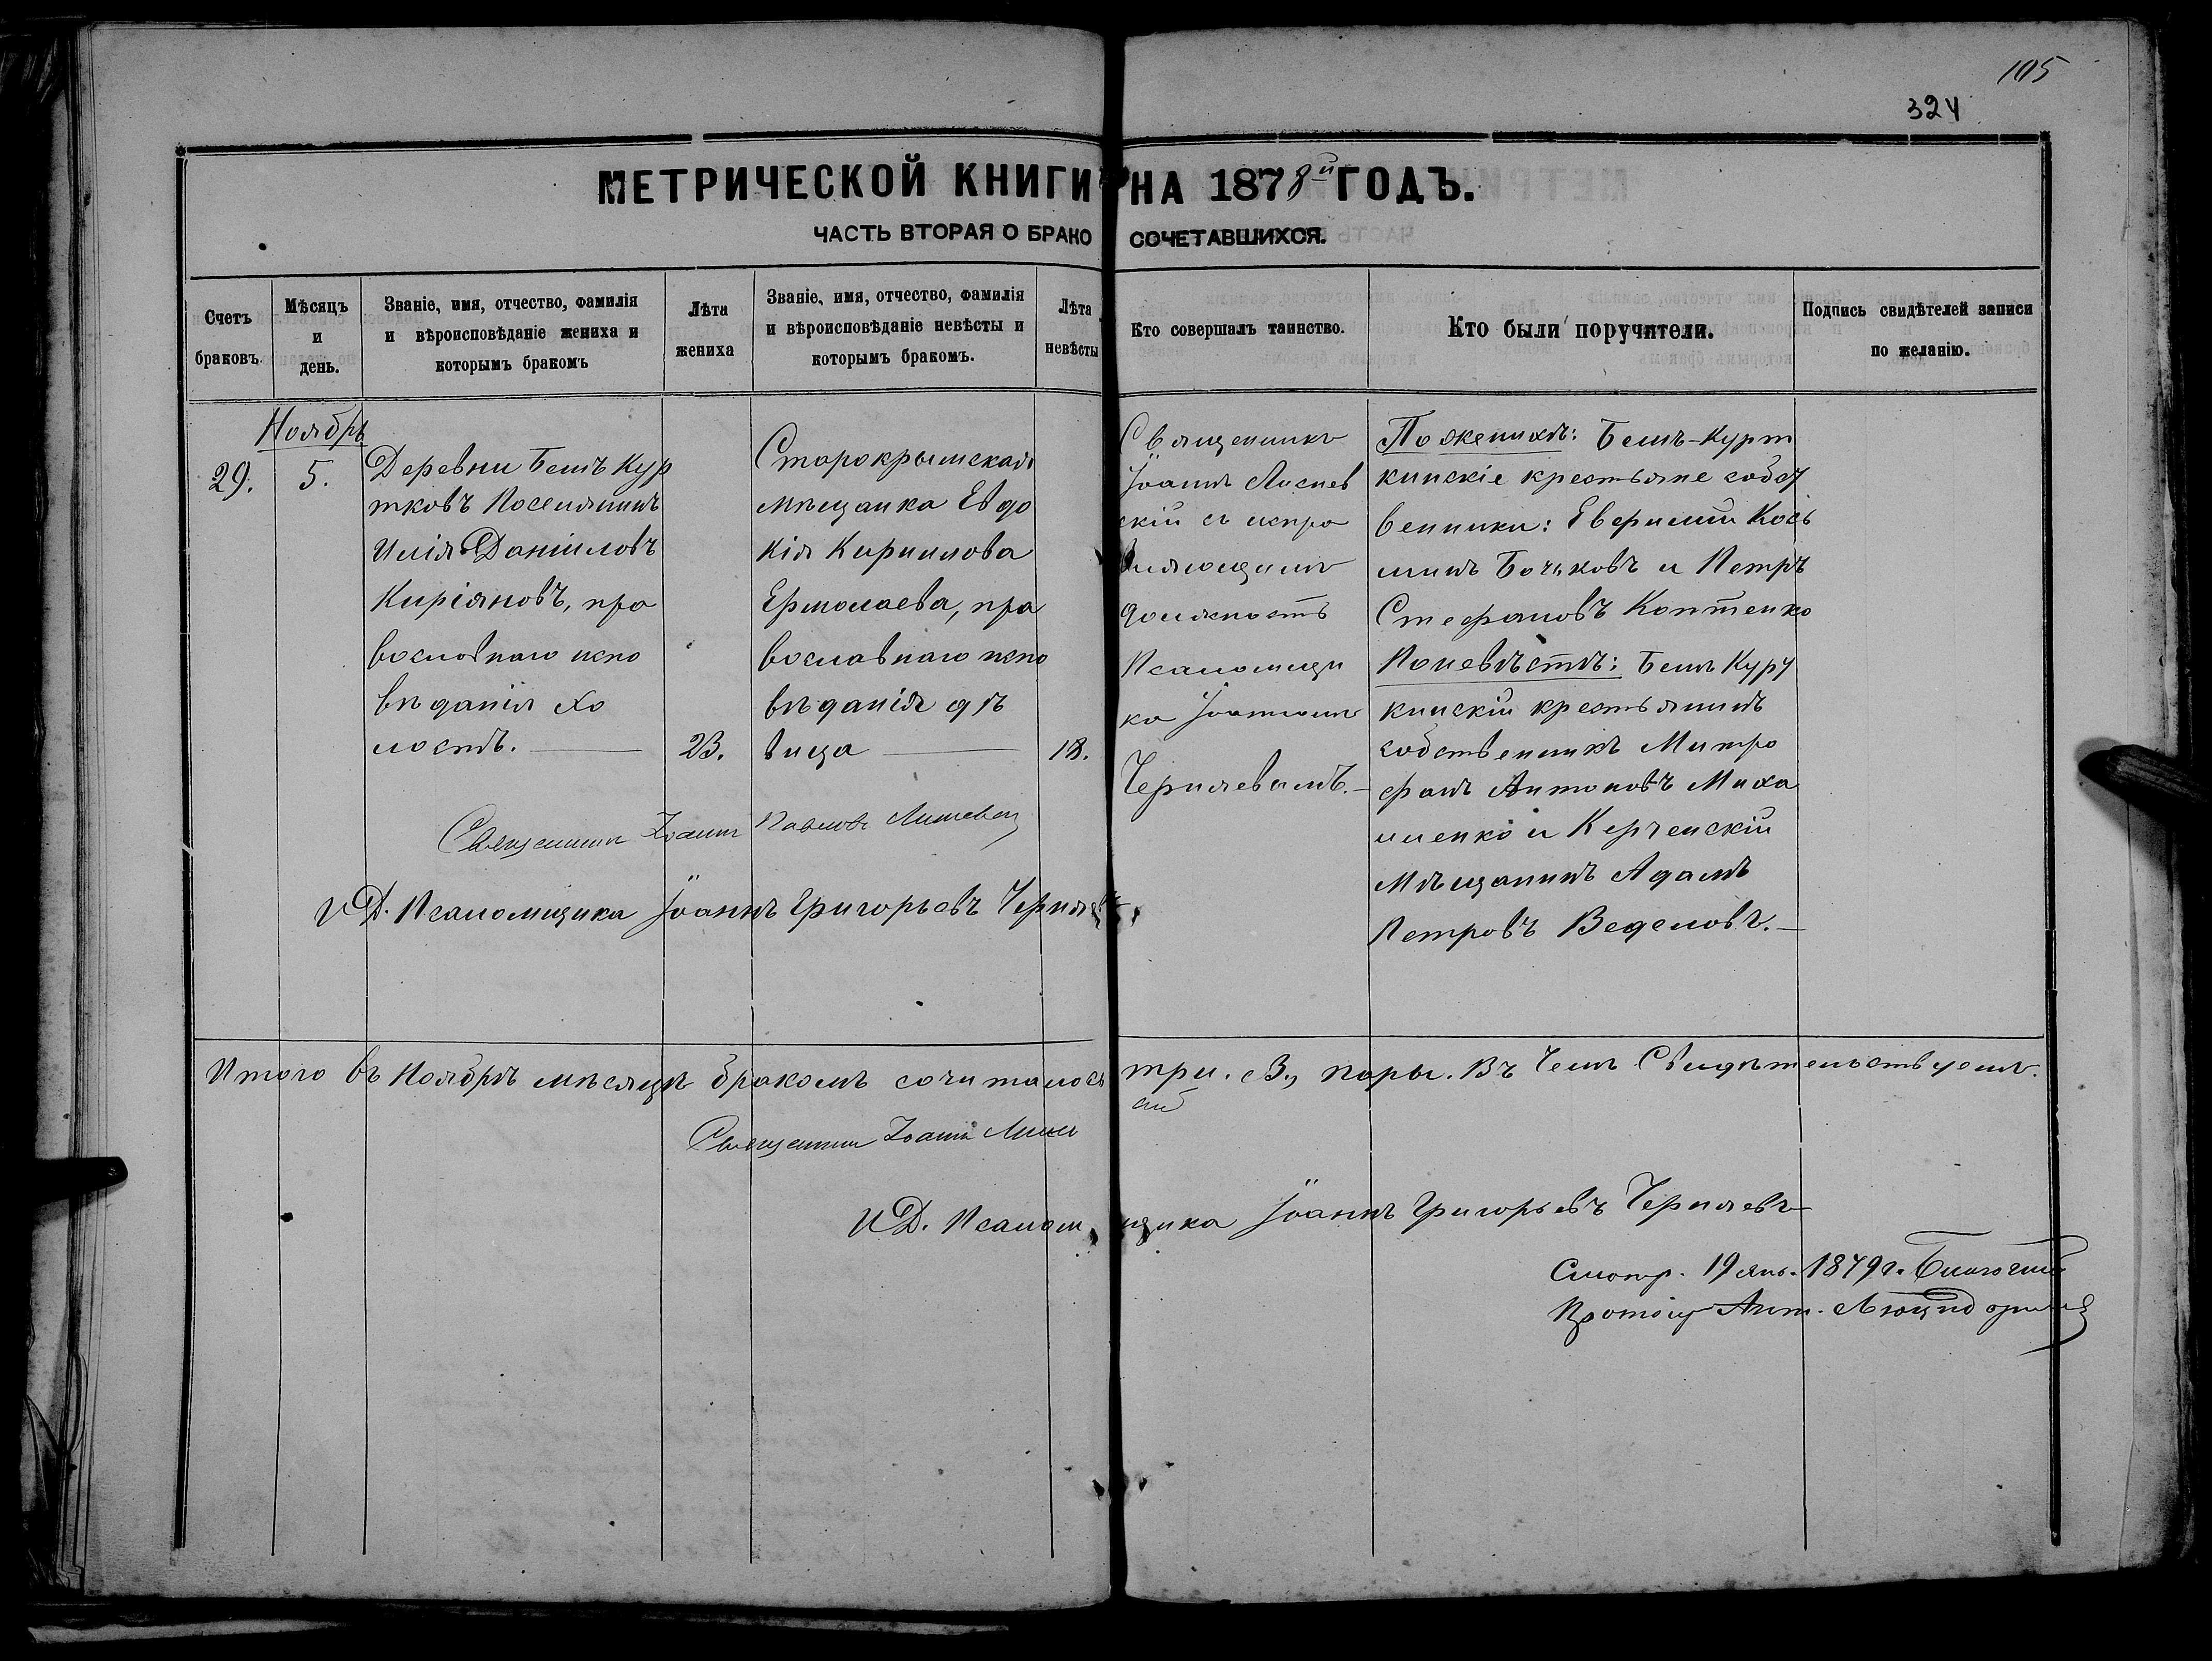 105
324
МЕТРИЧЕСКОЙ КНИГИ НА 1878й ГОДЪ.
ЧАСТЬ ВТОРАЯ О БРАКОСОЧЕТАВШИХСЯ.
Счетъ браковъ.
Мѣсяцъ и день.
Званіе, имя, отчество, фамилія и вѣроисповѣданіе жениха и которымъ бракомъ
Лѣта жениха
Званіе, имя, отчество, фамилія и вѣроисповѣданіе невѣсты и которымъ бракомъ.
Лѣта невѣсты
Кто совершалъ таинство.
Кто были поручители.
Подпись свидѣтелей записи по желанію.
Ноябрь
29.
5.
Деревни Бешъ Кур
тковъ Поселянинъ
Илія Даніиловъ
Киріяновъ, пра
вославнаго испо
вѣданія хо
лостъ.
23.
Старокрымская
мѣщанка Евдо
кія Кириллова
Ермолаева, пра
вославнаго испо
вѣданія дѣ
вица
18.
Священникъ
Іоаннъ
скій съ испра
вляющимъ
должность
Псаломщи
ка Іоанномъ
Черняевымъ.
По женихѣ: Бешъ-Курт
кинскіе крестьяне собст
венники: Кось
минъ Бочковъ и Петръ
Стефановъ Коптенко
По невѣстѣ: Бешъ Курт
кинскій крестьянинъ
собственникъ Митро
фанъ Антоновъ Миха
йленко и Керченскій
Мѣщанинъ Адамъ
Петровъ Веделовъ.
Священникъ Іоаннъ Павловъ
И.Д. Псаломщика Іоаннъ Григорьевъ Черняевъ
Итого въ Ноябрѣ мѣсяцѣ бракомъ сочиталось три. 3., пары. Въ чемъ Свидѣтельствуемъ.
Священникъ Іоаннъ
И.Д. Псаломщика Іоаннъ Григорьевъ Черняевъ
Смотр. 19 янв. 1879 г. Благочин
Протоіер Ант.